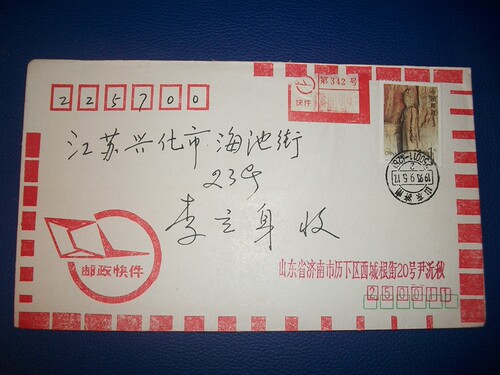 第342号
快件
225700
江苏兴化市海池街
23号
李立身 收
邮政快件
山东省济南市历下区酉城根街20号尹沂秋
250011